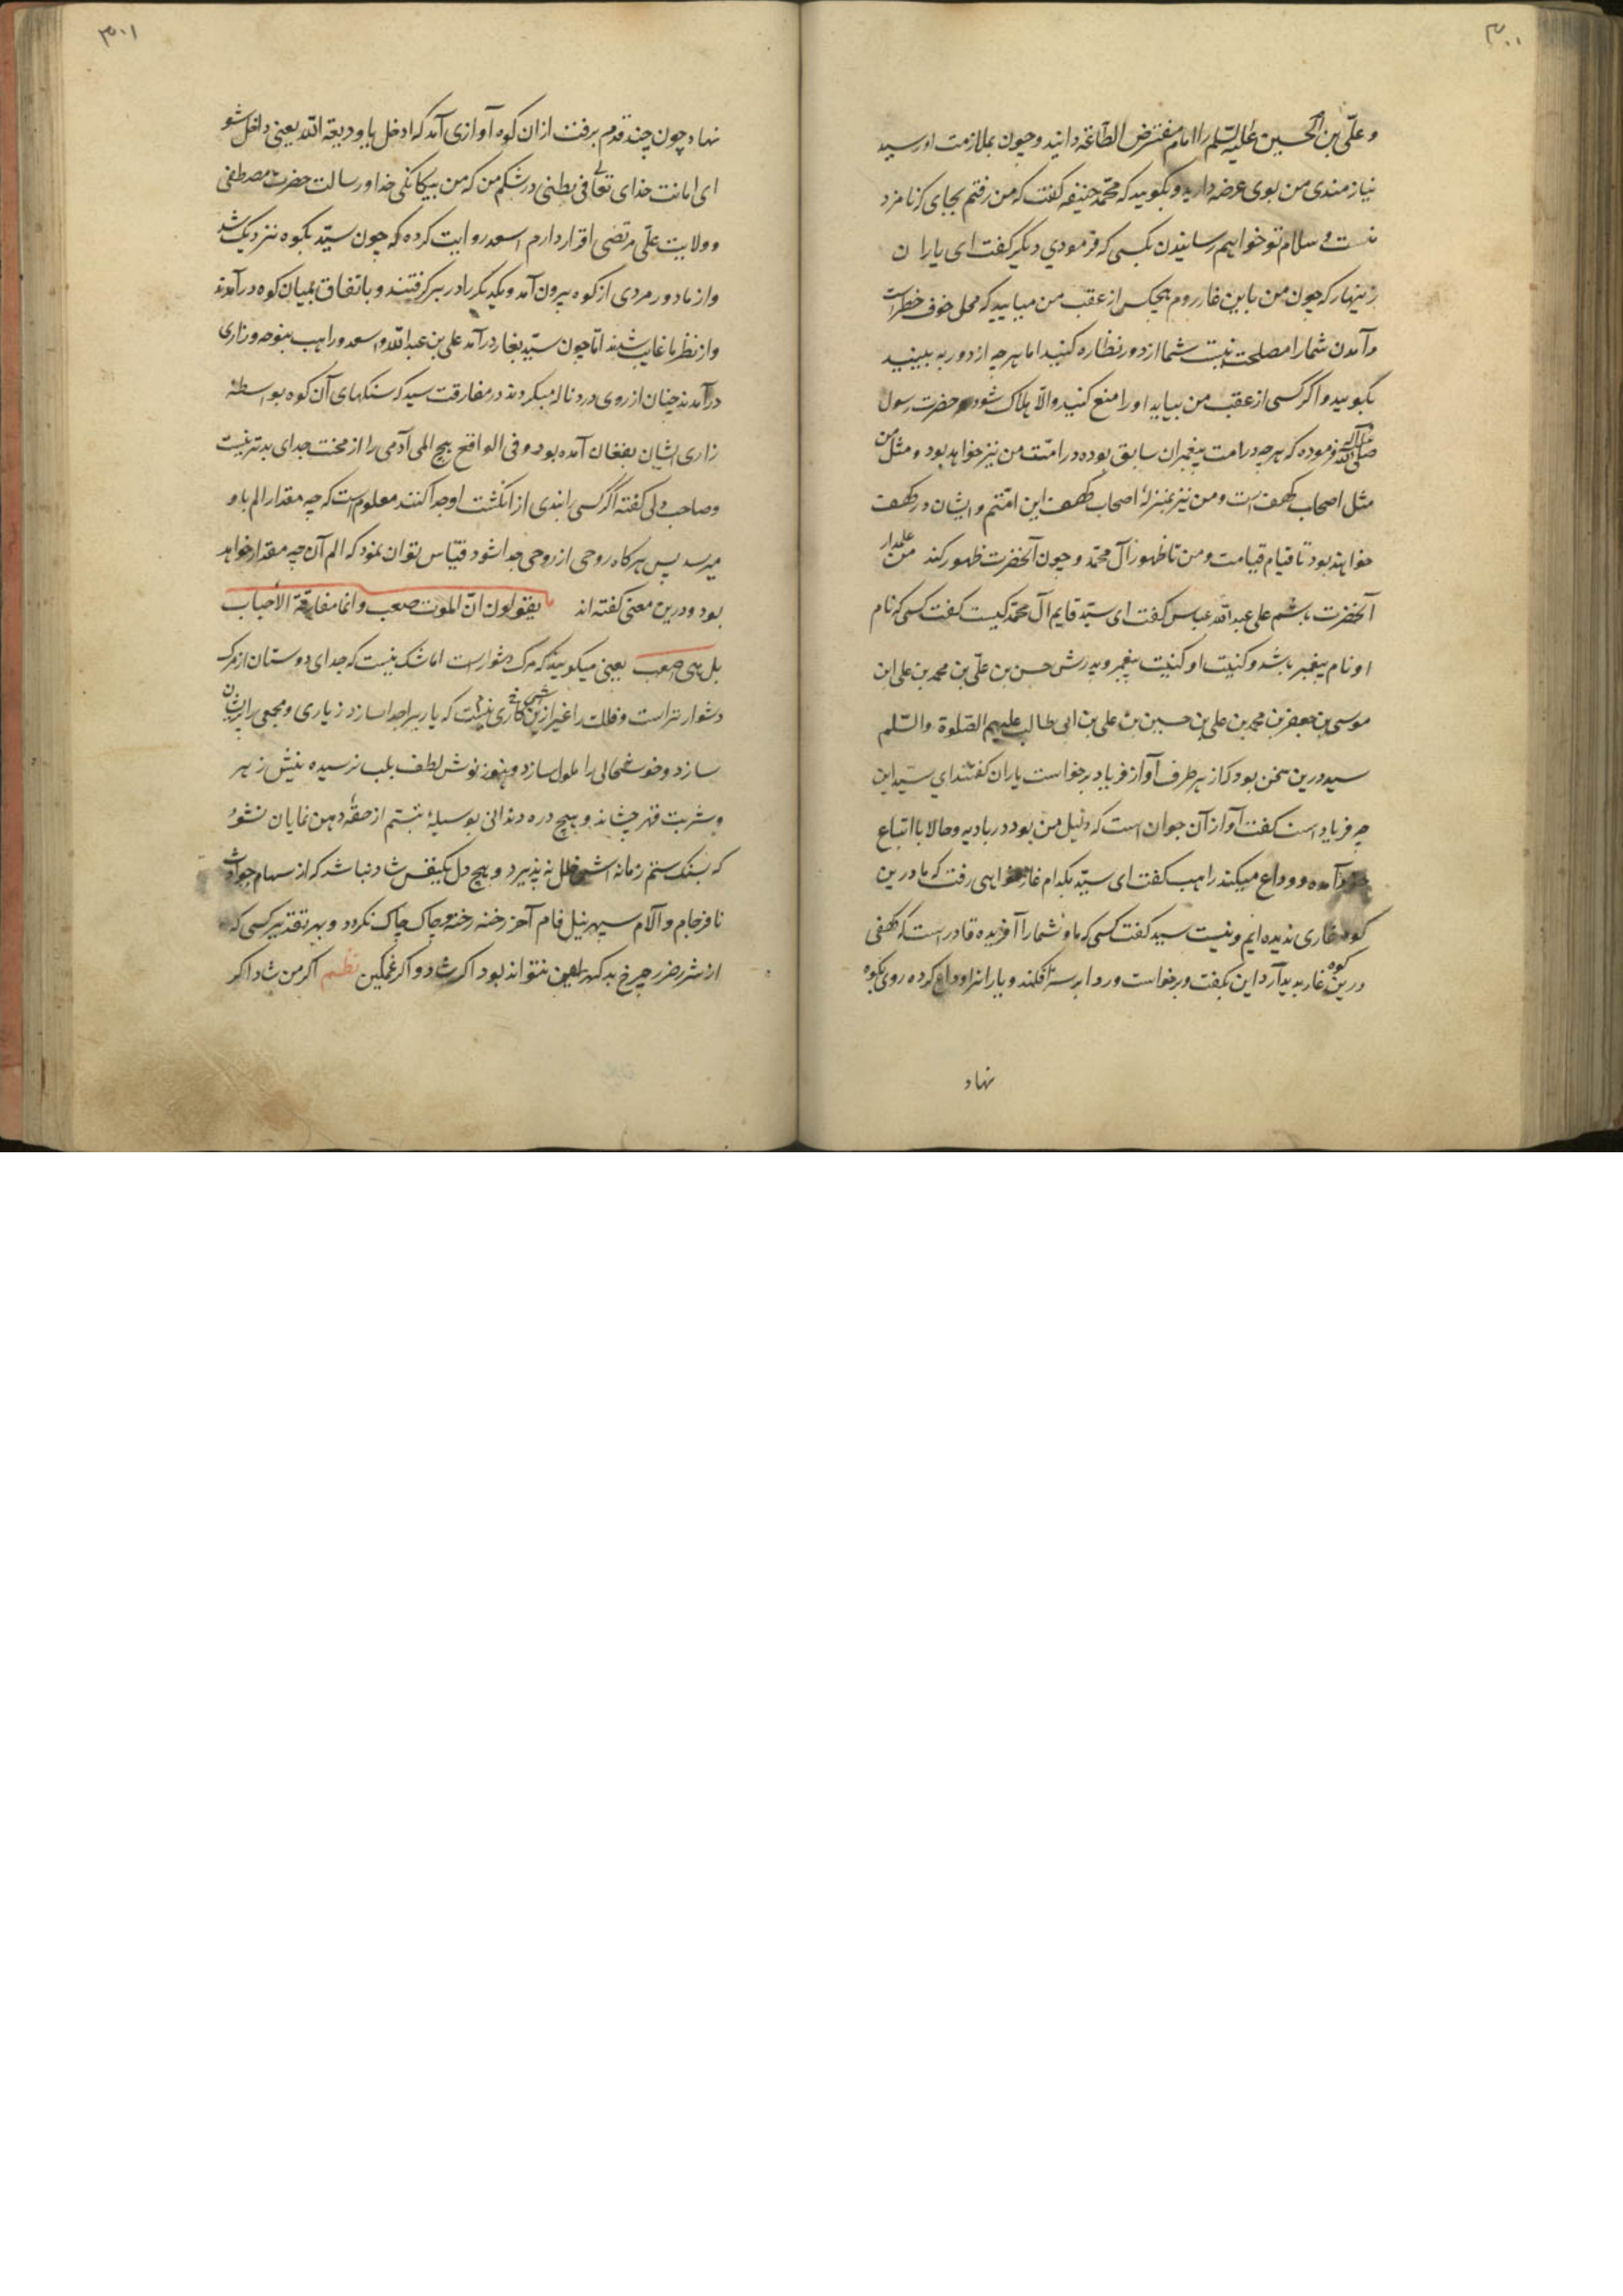 ۳۰۰
و علی بن الحسین علیه السلم را امام مفترض الطاعة دانید و چون بملازمت او رسید
نیازمندی من بوی عرضه دارید و بکویید که محمد حنیفه کفت که من رفتم بجای که نامزد
منست و سلام تو خواهیم رسانیدن بکسی که فرمودی دیکر کفت ای یاران
زینهار که چون من باین غار روم هیچکس از عقب من میایید که محل خوف خطر است
و آمدن شما را مصلحت نیست شما از دور نظاره کنید اما هر چه از دور به بینید
بکویید و اکر کسی از عقب من بیاید او را منع کنید و الا هلاک شود و حضرت رسول
صلی الله علیه و آله فرموده که هر چه در امت پیغمبران سابق بوده در امت من نیز خواهد بود و مثل من
مثل اصحاب کهف است و من نیز بمنزلهٔ اصحاب کهف این امتم و ایشان در کهف
خواهند بود تا قیام قیامت و من تا ظهور آل محمد و چون آنحضرت ظهور کند من علمدار
آنحضرت باشم علی عبد الله عباس کفت ای سید قایم آل محمد کیست کفت کسی که نام
او نام پیغمبر باشد و کنیت او کنیت پیغمبر و پدرش حسن بن علی بن محمد بن علی ابن
موسی بن جعفر بن محمد بن علی بن حسین بن علی بن ابی طالب علیهم الصلوة والسلم
سید درین سخن بود که از هر طرف آواز فریاد برخواست یاران کفتند ای سید این
چه فریاد است کفت آواز آن جوان است که دلیل من بود در بادیه و حالا با اتباع
خود آمده و وداع میکند راهب کفت ای سید بکدام غار خواهی رفت که ما درین
کوه غاری ندیده ایم و نیست سید کفت کسی که ما و شما را آفریده قادر است که کهفی
درین کوه غار پدید آرد این بکفت و برخواست و ردا بر سر افکند و یارانرا وداع کرده روی بکوه
نهاد
۳۰۱
نهاد چون چند قدم برفت از ان کوه آوازی آمد که ادخل یا ودیعة الله یعنی داخل شو
ای امانت خدای تعالی فی بطنی در شکم من که من بیکانکی خدا و رسالت حضرت مصطفی
و ولایت علی مرتضی اقرار دارم اسعد روایت کرده که چون سید بکوه نزدیک شد
و از مادور مردی از کوه بیرون آمد و یکدیکر را در بر کرفتند و باتفاق بمیان کوه درآمدند
و از نظر ما غایب شدند اما چون سید بغار درآمد علی بن عبد الله و اسعد و راهب بنوحه و زاری
درآمدند چنان از روی درد ناله میکردند در مفارقت سید که سنکهای آن کوه بواسطهٔ
زاری ایشان بفغان آمده بود و فی الواقع هیچ المی آدمی را از محنت جدای بدتر نیست
و صاحب دلی کفته اکر کسی را بندی از انکشت او جدا کنند معلوم است که چه مقدار الم باو
میرسد پس هرکاه روحی از روحی جدا شود قیاس توان نمود که الم آن چه مقدار خواهد
بود و درین معنی کفته اند یقولون ان الموت صعب و انما مفارقة الأحباب
بل هی اصعب یعنی میکویند که مرک دشوار است اما شک نیست که جدای دوستان از مرک
دشوارتر است و فلک را غیر ازین کاری نیست که یاریرا جدا سازد ز یاری و جمعی را پریشان
سازد و خوشحالی را ملول سازد و هنوز نوش لطف بلب نرسیده نیش زهر
و شربت قهر چشاند و هیچ دره دندانی بوسیلهٔ تبسم از حقهٔ دهن نمایان نشود
که بسنک ستم زمانه اش خلل نه پذیرد و هیچ دل یکنفس شاد نباشد که از سهام حوادث
نافرجام و آلام سپهر نیل فام آخر رخنه رخنه و چاک چاک نکردد و بهر تقدیر کسی که
از شر ضرر چرخ بدکهر ایمن نتواند بود اکر شاد و اکر غمکین نظم اکر من شاد اکر